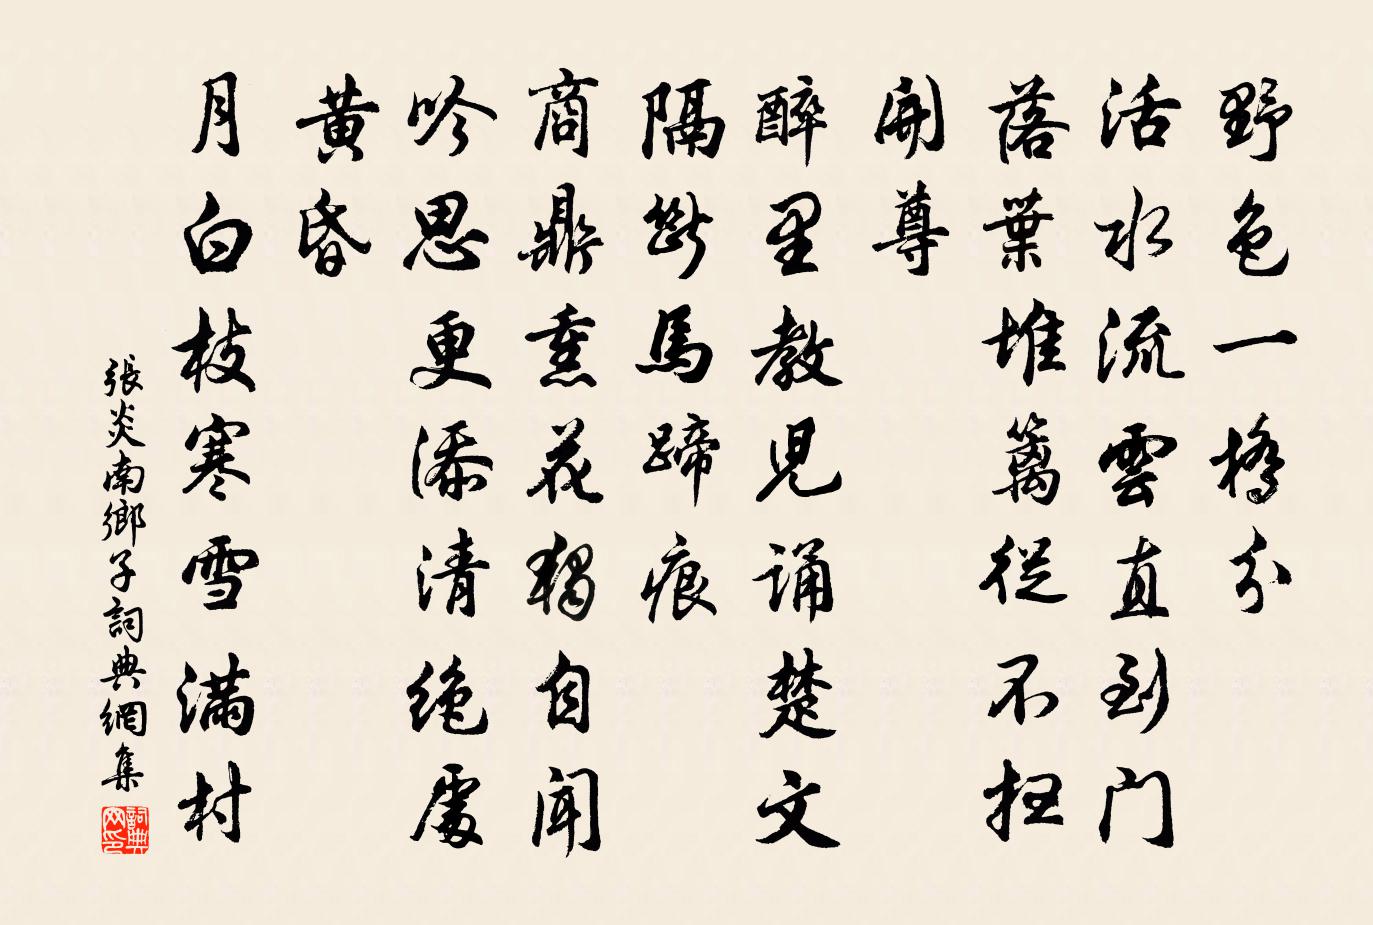 野色一橋分
活水流雲直到门
落葉堆籬從不扫
開尊
醉里教児诵楚文
隔斷馬蹄痕
商鼎熏花獨自聞
吟思更添清絕處
黃昏
月白枝寒雪滿村
張炎南鄉子詞典網集
詞典网印